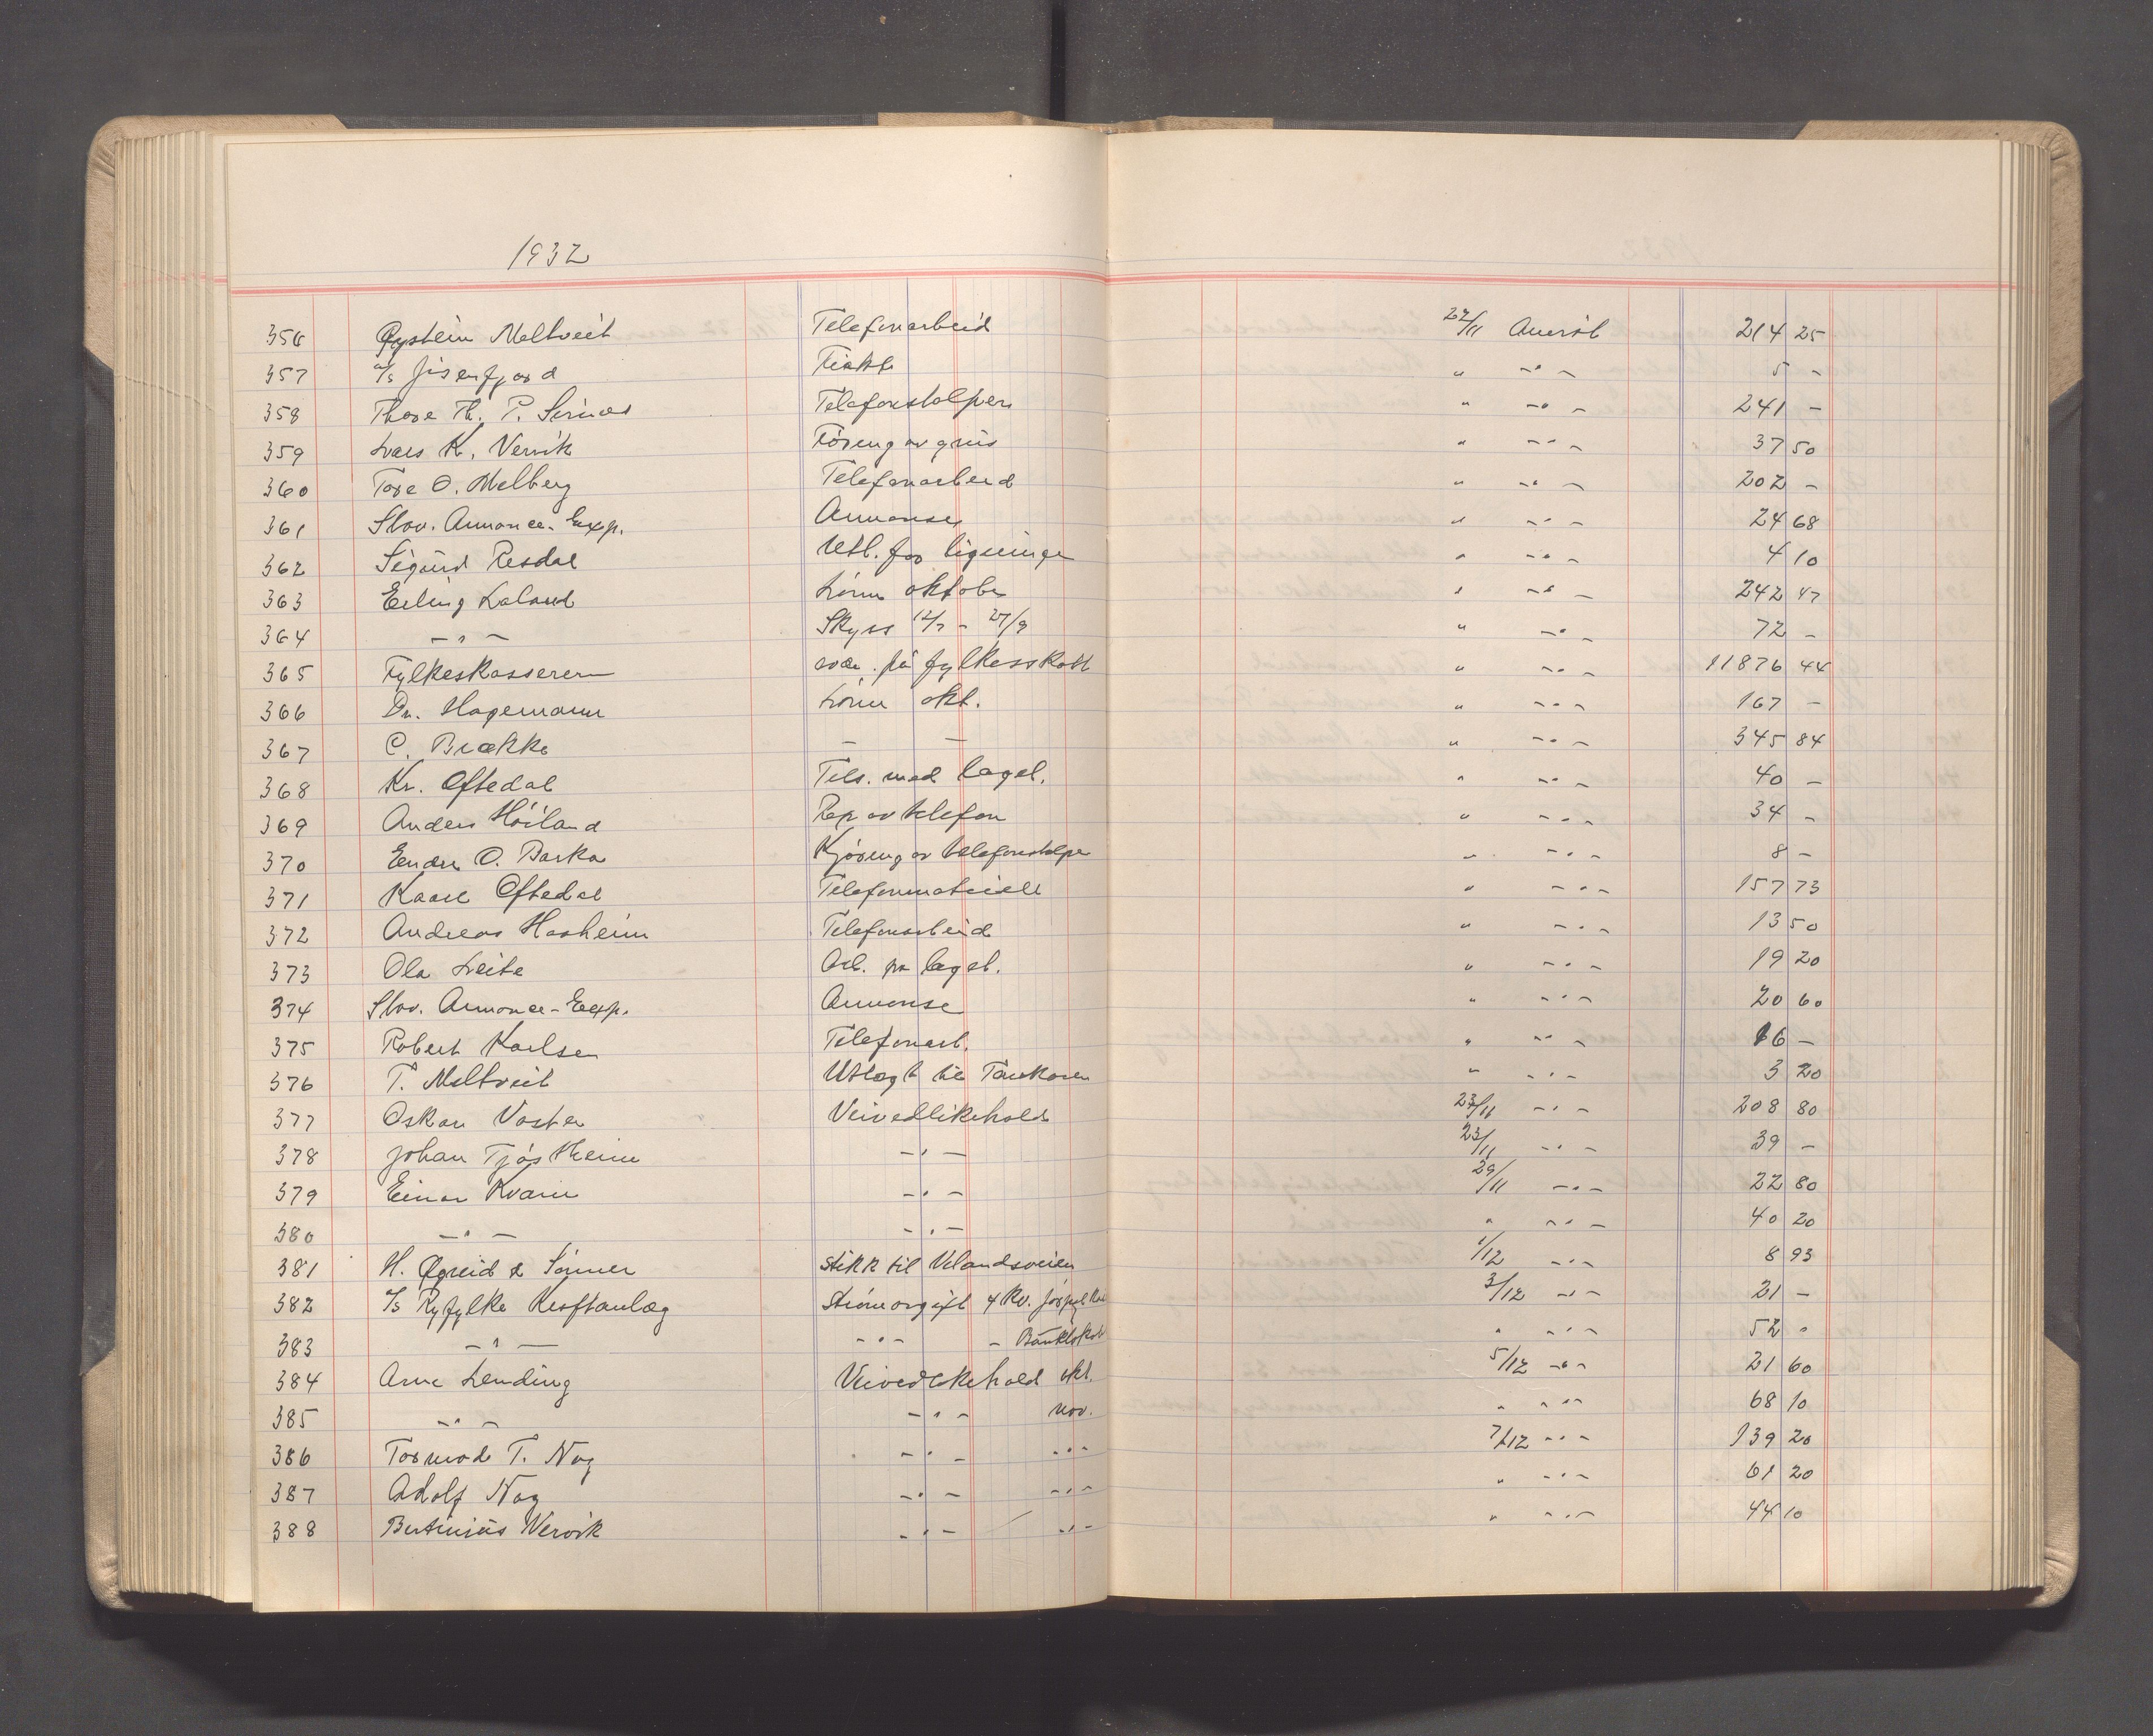 1932
356 Øystein Meltveit Telefonarbeid 22/11 Anvist 214 25
357 A/s Jøsenfjord Frakt " -"- 5 -
358 Thore Th. P. Telefonstolper " -"- 241 -
359 Lars K. Vervik Kjøring av grus " -"- 37 50
360 Tore O. Melberg Telefonarbeid " -"- 202 -
361 Stav. Annonce-Exp. Annonser " -"- 24 68
362 Sigurd Resdal Utl. for ligninga " -"- 4 10
363 Erling Laland Lønn oktober " -"- 242 47
364 -"- Skyss 12/7 - 27/9 " -"- 72 -
365 Fylkeskassereren avdr. på fylkesskatt " -"- 11876 44
366 Dr. Hagemann Lønn okt. " -"- 167 -
367 C. Brække - - " -"- 345 84
368 Kr. Oftedal Tils. med laget. " -"- 40 -
369 Anders Höiland Rep av telefon " -"- 34 -
370 Endre O. Barka Kjøring av telefonstolper " -"- 8 -
371 Kaare Oftedal Telefonmateriell " -"- 157 73
372 Andreas Hasheim Telefonarbeid " -"- 13 50
373 Ola Leite Arb. på laget. " -"- 19 20
374 Stav. Annonce-Exp. Annonse " -"- 20 60
375 Robert Karlsen Telefonarb. " -"- 16 -
376 T. Meltveit Utlagt til " -"- 3 20
377 Oskar Vaster Veivedlikehold 23/11 -"- 208 80
378 Johan Tjøstheim -"- 23/11 -"- 39 -
379 Einar Kvam -"- 29/11 -"- 22 80
380 -"- -"- " -"- 40 20
381 H. Øgreid & Sønner Stikk til Velandsveien 1/12 -"- 8 93
382 A/s Ryfylke Kraftanlæg Strømavgift 4 kv. 3/12 -"- 21 -
383 -"- -"- - " -"- 52 -
384 Arne Lending Veivedlikehold okt. 5/12 -"- 21 60
385 -"- -"- nov. " -"- 68 10
386 Tormod T. Nag -"- -"- 7/12 -"- 139 20
387 Adolf Nag -"- -"- " -"- 61 20
388 Bertinius Vervik -"- -"- " -"- 44 10